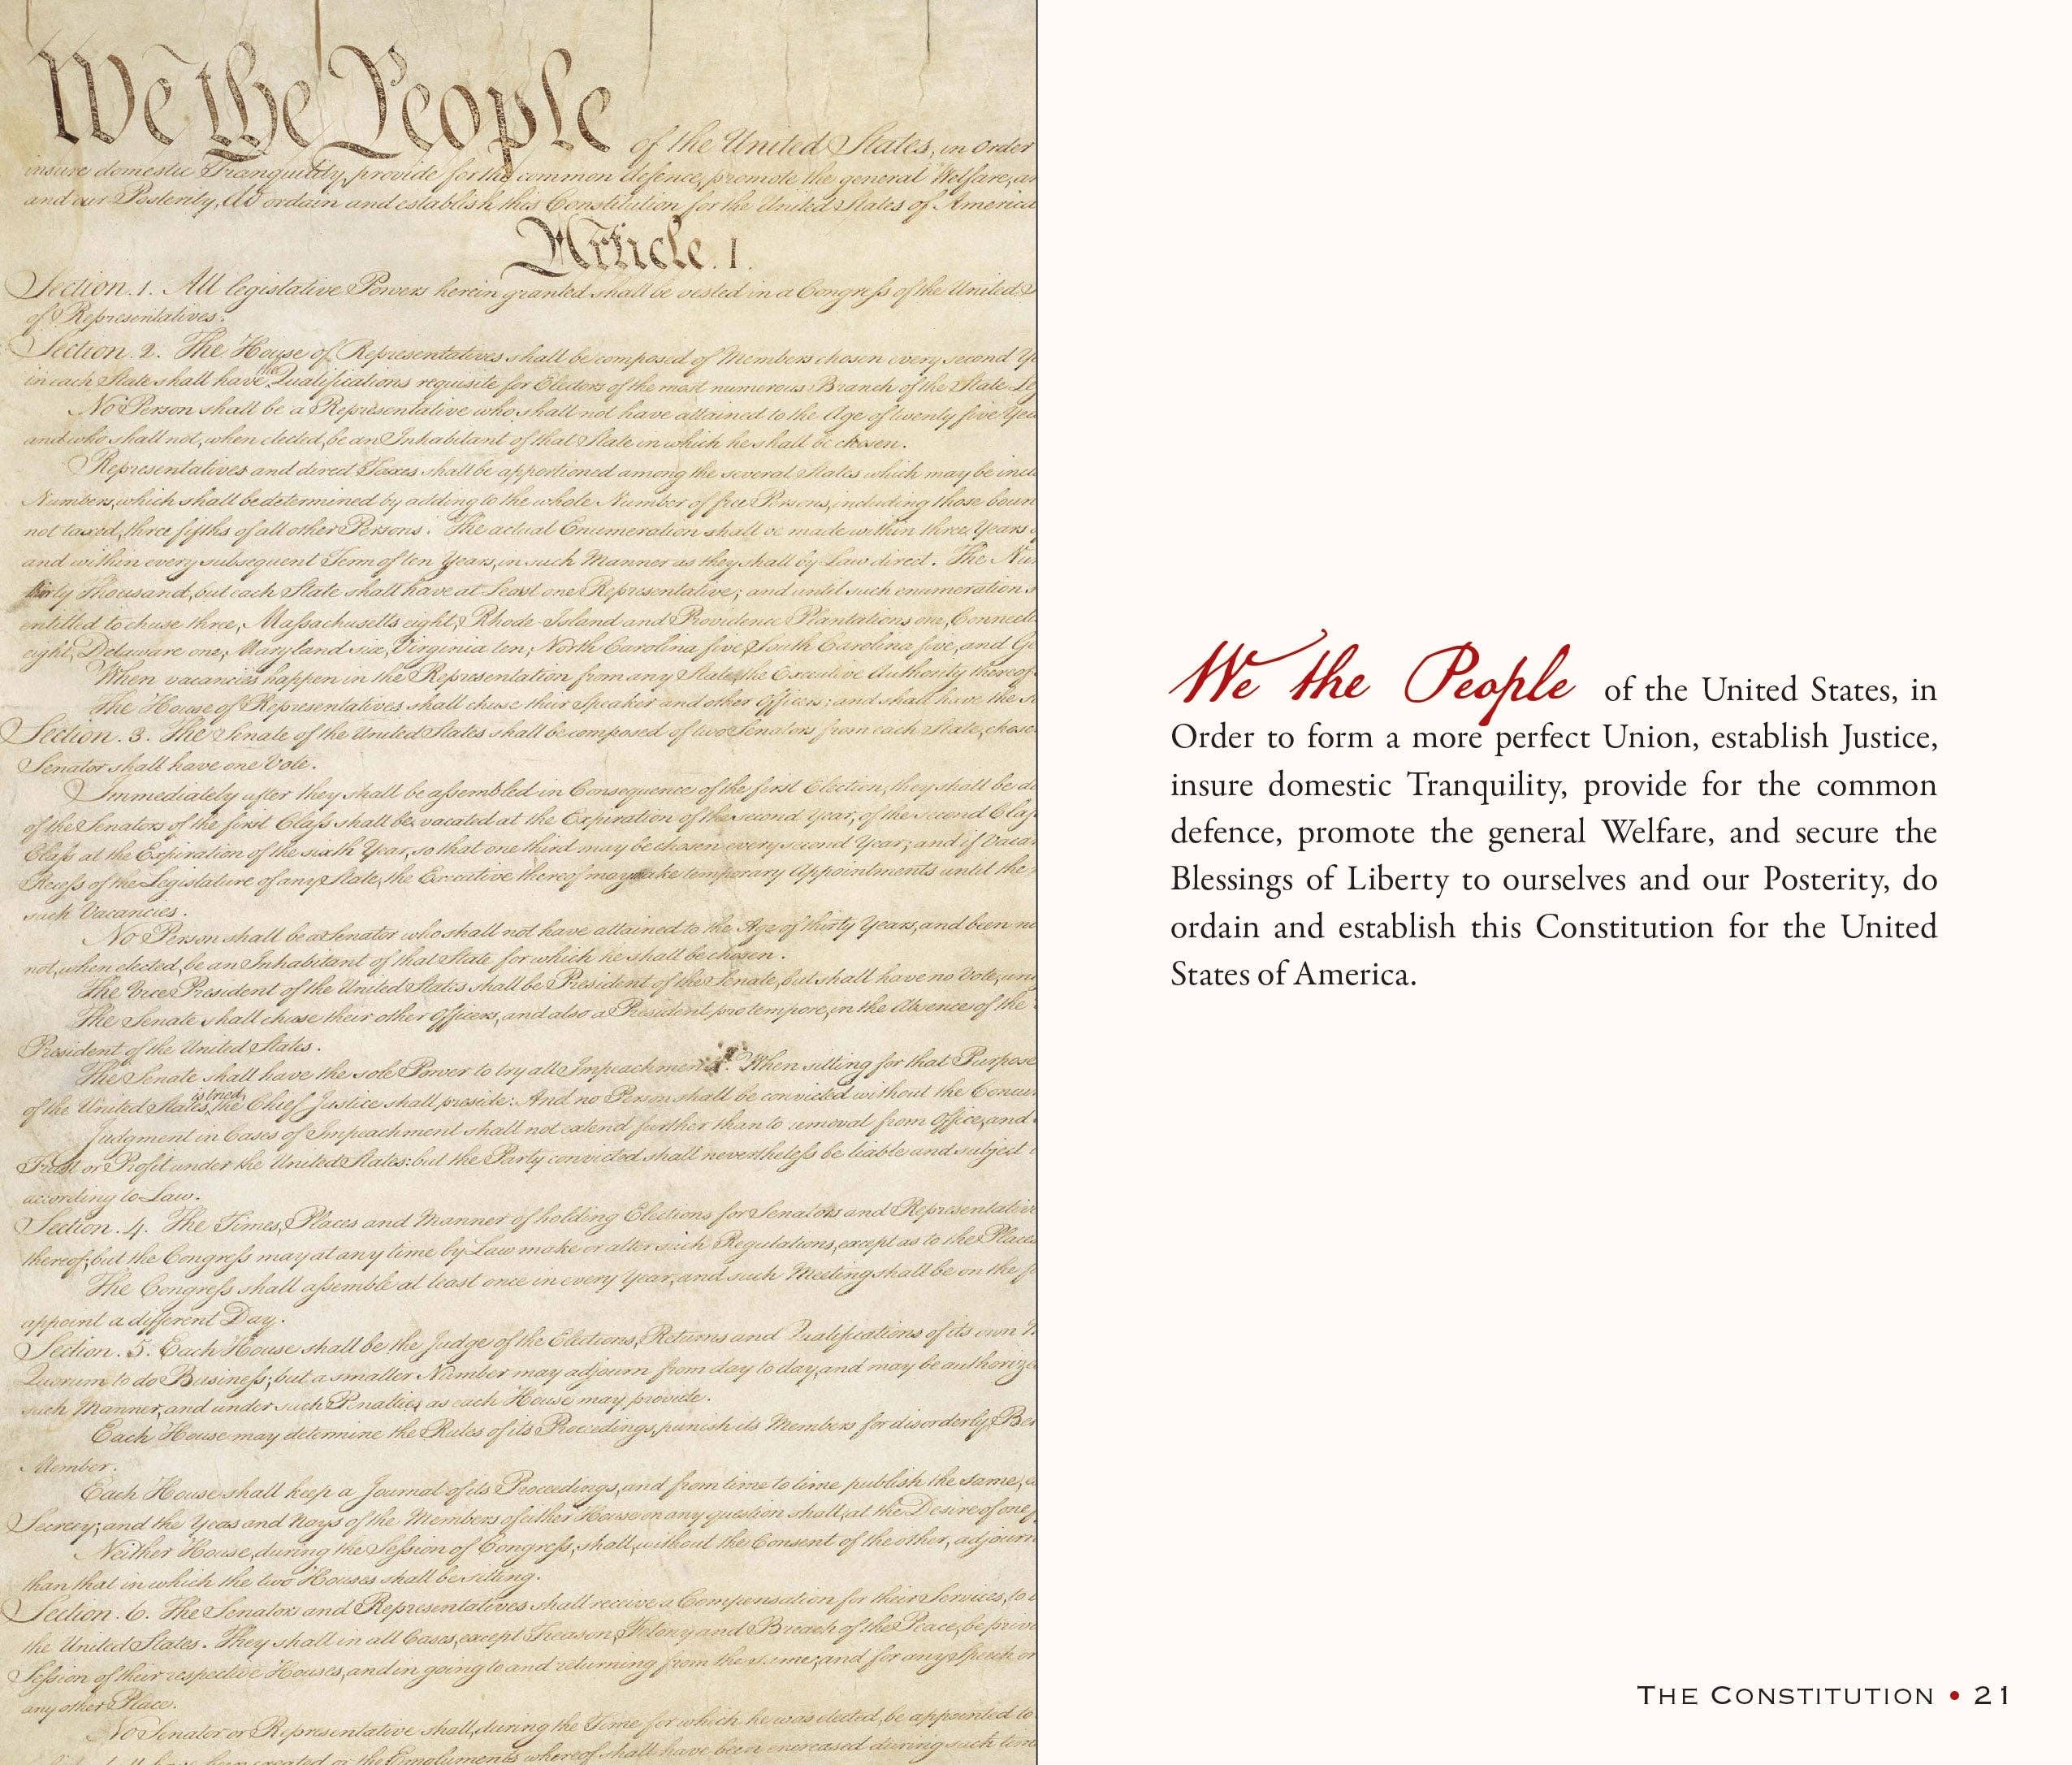 We the People of the United States, in Order
insure domestic Tranquility, provide for the common defence, promote the general Welfare, an
and our Posterity, do ordain and establish this Constitution for the United States of America
Article. I.
Section. 1. All legislative Powers herein granted shall be vested in a Congress of the United S
of Representatives.
Section. 2. The House of Representatives shall be composed of Members chosen every second Ye
in each State shall have the Qualifications requisite for Electors of the most numerous Branch of the State Le
No Person shall be a Representative who shall not have attained to the Age of twenty five Yea
and who shall not, when elected, be an Inhabitant of that State in which he shall be chosen.
Representatives and direct Taxes shall be apportioned among the several States which may be incl
Numbers, which shall be determined by adding to the whole Number of free Persons, including those boun
not taxed, three fifths of all other Persons. The actual Enumeration shall be made within three Years
and within every subsequent Term of ten Years, in such Manner as they shall by Law direct. The Nu
thirty Thousand, but each State shall have at Least one Representative; and until such enumeration s
entitled to chuse three, Massachusetts eight, Rhode-Island and Providence Plantations one, Connecti
eight, Delaware one, Maryland six, Virginia ten, North Carolina five, South Carolina five, and Ge
When vacancies happen in the Representation from any State, the Executive Authority thereof
The House of Representatives shall chuse their Speaker and other Officers; and shall have the s
Section. 3. The Senate of the United States shall be composed of two Senators from each State, chose
Senator shall have one Vote.
Immediately after they shall be assembled in Consequence of the first Election, they shall be di
of the Senators of the first Class shall be vacated at the Expiration of the second Year, of the second Clas
Class at the Expiration of the sixth Year, so that one third may be chosen every second Year; and if Vacan
Recess of the Legislature of any State, the Executive thereof may make temporary Appointments until the
such Vacancies.
No Person shall be a Senator who shall not have attained to the Age of thirty Years, and been ni
not, when elected, be an Inhabitant of that State for which he shall be chosen.
The Vice President of the United States shall be President of the Senate, but shall have no Vote, unl
The Senate shall chuse their other Officers, and also a President pro tempore, in the Absence of the
President of the United States.
The Senate shall have the sole Power to try all Impeachments. When sitting for that Purpose
of the United States is tried, the Chief Justice shall preside: And no Person shall be convicted without the Concur
Judgment in Cases of Impeachment shall not extend further than to removal from Office, and
Trust or Profit under the United States: but the Party convicted shall nevertheless be liable and subject
according to Law.
Section. 4. The Times, Places and Manner of holding Elections for Senators and Representative
thereof; but the Congress may at any time by Law make or alter such Regulations, except as to the Places
The Congress shall assemble at least once in every Year, and such Meeting shall be on the f
appoint a different Day.
Section. 5. Each House shall be the Judge of the Elections, Returns and Qualifications of its own M
Quorum to do Business; but a smaller Number may adjourn from day to day, and may be authorize
such Manner, and under such Penalties as each House may provide.
Each House may determine the Rules of its Proceedings, punish its Members for disorderly Be
Member.
Each House shall keep a Journal of its Proceedings, and from time to time publish the same,
Secrecy; and the Yeas and Nays of the Members of either House on any question shall, at the Desire of one
Neither House, during the Session of Congress, shall, without the Consent of the other, adjourn
than that in which the two Houses shall be sitting.
Section. 6. The Senators and Representatives shall receive a Compensation for their Services, to
the United States. They shall in all Cases, except Treason, Felony and Breach of the Peace, be privi
Session of their respective Houses, and in going to and returning from the same; and for any Speech or
any other Place.
No Senator or Representative shall, during the Time for which he was elected, be appointed to
shall have been created, or the Emoluments whereof shall have been encreased during such time
We the People of the United States, in
Order to form a more perfect Union, establish Justice,
insure domestic Tranquility, provide for the common
defence, promote the general Welfare, and secure the
Blessings of Liberty to ourselves and our Posterity, do
ordain and establish this Constitution for the United
States of America.
THE CONSTITUTION • 21